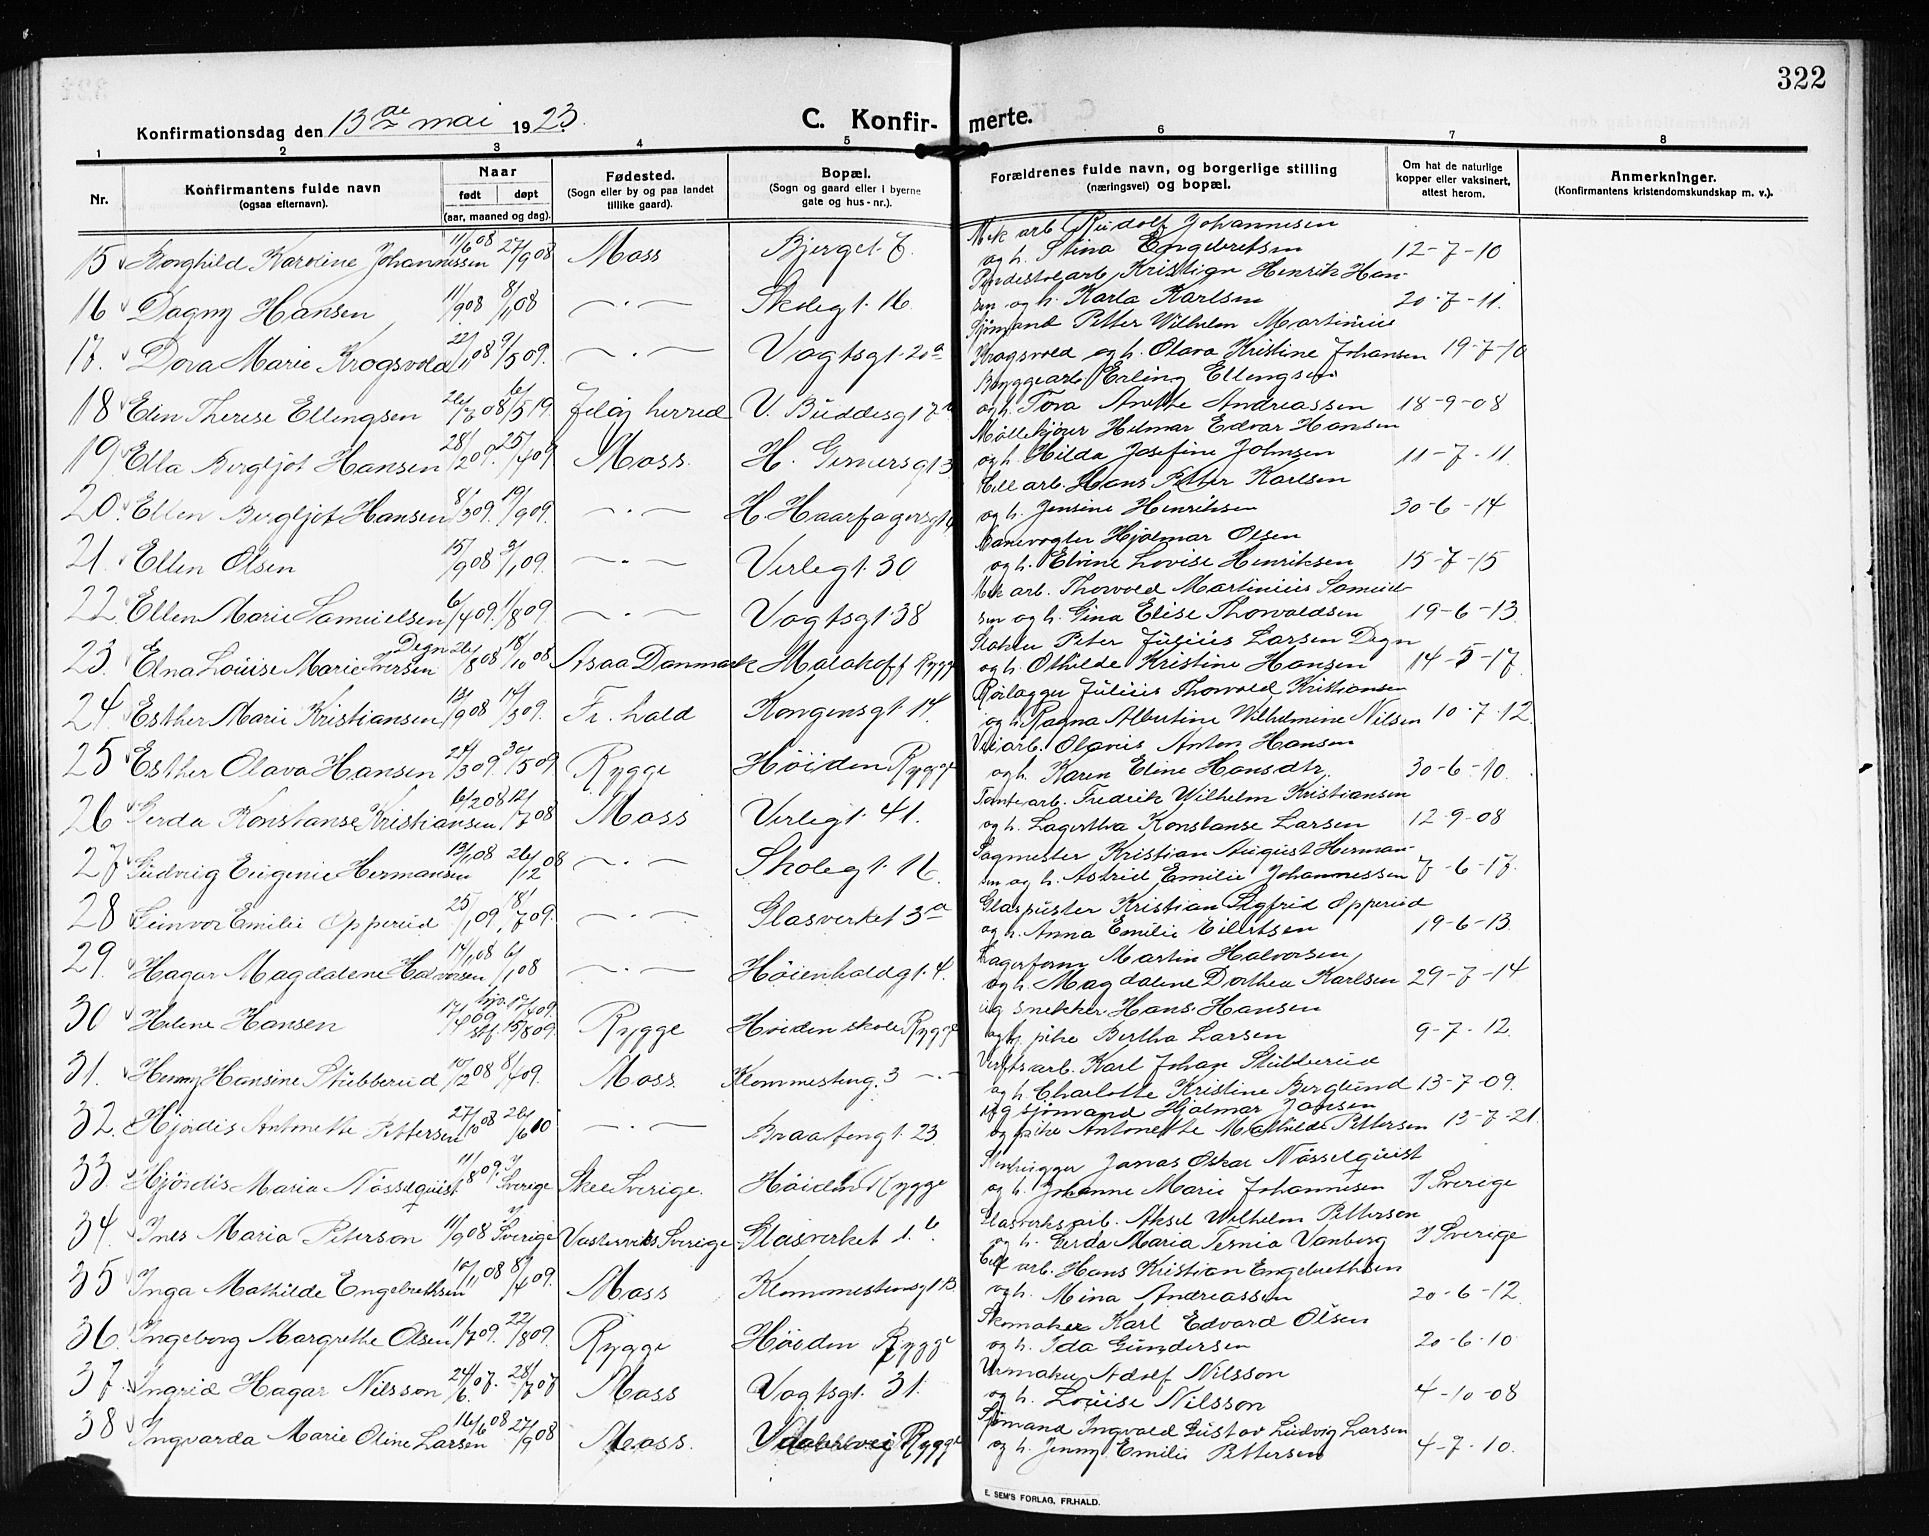 322
Konfirmationsdag den 13de mai 1923.
C. Konfir- merte.
1 2 3 4 5 6 7 8
Nr. Konfirmantens fulde navn (ogsaa efternavn). Naar født døpt (aar, maaned og dag). Fødested. (Sogn eller by og paa landet tillike gaard). Bopæl. (Sogn og gaard eller i byerne gate og hus-nr.). Forældrenes fulde navn, og borgerlige stilling (næringsvei) og bopæl. Om hat de naturlige kopper eller vaksinert, attest herom. Anmerkninger. (Konfirmantens kristendomskundskap m. v.).
Mek arb Rudolf Johannesen
15 Borghild Karoline Johannessen 11/6 08 27/9 08 Moss Bjerget 7. og h. Stina Engebretsen 12-7-10
Kristian Henrik Han-
16 Dagny Hansen 1/9 08 8/1 08 —·— Skolegt. 16 sen og h. Karla Karlsen 20-7-11.
Sjømand Petter Wilhelm Martinius
17. Dora Marie Krogsvold 22/1 08 9/5 09. —·— Vogtsgt. 20a Krogsvold og h. Olava Kristine Johansen 19-7-10
Bryggearb Erling Ellengsen
18 Elin Therese Ellengsen 26/7 08 6/5 19. Jeløy herred V. Buddesgt 7b og h. Tora Anette Andreassen 18-9-08
Møllekjører Helmar Edvar Hansen
19 Ella Bergljot Hansen 28/2 09. 25/4 09 Moss. H. Gernersgt 3 og h. Hilda Josefine Johnsen 11-7-11.
Cell arb. Hans Petter Karlsen
20. Ellen Bergljot Hansen 8/3 09. 19/9 09. —·— H. Haarfagersgt og h. Jensine Henriksen 30-6-14
Banevogter Hjalmar Olsen
21. Ellen Olsen 15/9 08 3/1 09. —·— Verlegt. 30 og h. Elvine Lovise Henriksen 15-7-15
Mek arb. Thorvald Martinius Samuel-
22. Ellen Marie Samuelsen 6/4 09. 1/8 09. —·— Vogtsgt. 38 sen og h. Gina Elise Thorvaldsen 19-6-13.
Peter Julius Larsen Degn
23. Elna Louise Marie Iversen Degn 26/8 08 18/10 08 Asaa Danmark Malakoff Rygge og h. Othilde Kristine Hansen 14-5-17.
Rørlægger Julius Thorvald Kristiansen
24. Esther Marie Kristiansen 13/9 08 14/3 09. Fr. hald Kongensgt. 14. og h. Ragna Albertine Wilhelmine Nilsen 10-7-12.
Veiarb. Olavus Anton Hansen
25 Esther Olava Hansen 24/3 09. 30/5 09 Rygge Høiden Rygge og h. Karen Eline Hansdtr. 30-6-10.
Tomtearb. Fredrik Wilhelm Kristiansen
26 Gerda Konstanse Kristiansen 6/2 08 12/7 08 Moss Verlegt. 41. og h. Lagertha Konstanse Larsen 12-9-08
Sagmester Kristian August Herman-
27 Gudveig Eugenie Hermansen 13/1 08 26/12 08 —·— Skolegt. 16. sen og h. Astrid Emilie Johannessen 7-6-17.
Glaspuster Kristian Sigfrid Opperud
28 Gunvor Emilie Opperud 25/1 09. 18/7 09. —·— Glasverket 3a og h. Anna Emilie Eilertsen 19-6-13.
Lagerform Martin Halvorsen
29. Hagar Magdalene Halvorsen 14/1 08 6/1 08 —·— Høienhaldgt. 4. og h. Magdalene Dorthea Karlsen 29-7-14
ug snekker Hans Hansen
30 Helene Hansen 17/4 09 hjd. 17/4 09. stf. 15/8 09 Rygge Høiden skole Rygge og pike Bertha Larsen 9-7-12.
Verftsarb. Karl Johan Stubberud
31. Henny Hansine Stubberud 10/12 08 8/4 09. Moss. Klommesteng. 3 —·— og h. Charlotte Kristine Berglund 13-7-09.
ug sjømand Hjalmar Jansen
32. Hjördis Antonette Pettersen 27/10 08 26/6 10 —·— Braatengt. 23 og pike Antonette Mathilde Pettersen 13-7-21
Stenhugger Jonas Oskar Nösselquist
33. Hjördis Maria Nösselquist 11/8 09. I Sverige Skee Sverige. Høiden Rygge og h. Johanne Marie Johannesen I Sverige
Glasverksarb. Aksel Wilhelm Petterson
34. Ines Maria Peterson 11/9 08 I Sverige Vastervik Sverige Glasverket 1.b og h. Gerda Maria Ternia Vanberg I Sverige
Cell arb. Hans Kristian Engebrethsen
35 Inga Mathilde Engebrethsen 10/11 08 8/4 09. Moss Klommestensgt 13 og h. Mina Andreassen 20-6-12.
Skomaker Karl Edvard Olsen
36. Ingeborg Margrethe Olsen 11/7 09. 22/8 09. Rygge Høiden Rygge og h. Ida Gundersen 20-6-10
Urmaker Adolf Nilsson
37. Ingrid Hagar Nilsson 24/6 07. 28/7 07 Moss Vogtsgt. 31. og h. Louise Nilsson 4-10-08
Sjømand Ingvald Gustav Ludvig Larsen
38 Ingvarda Marie Oline Larsen 16/6 08 27/9 08 Moss. Rygge og h. Jenny Emilie Pettersen 4-7-10.
E. SEM'S FORLAG, FR.HALD.